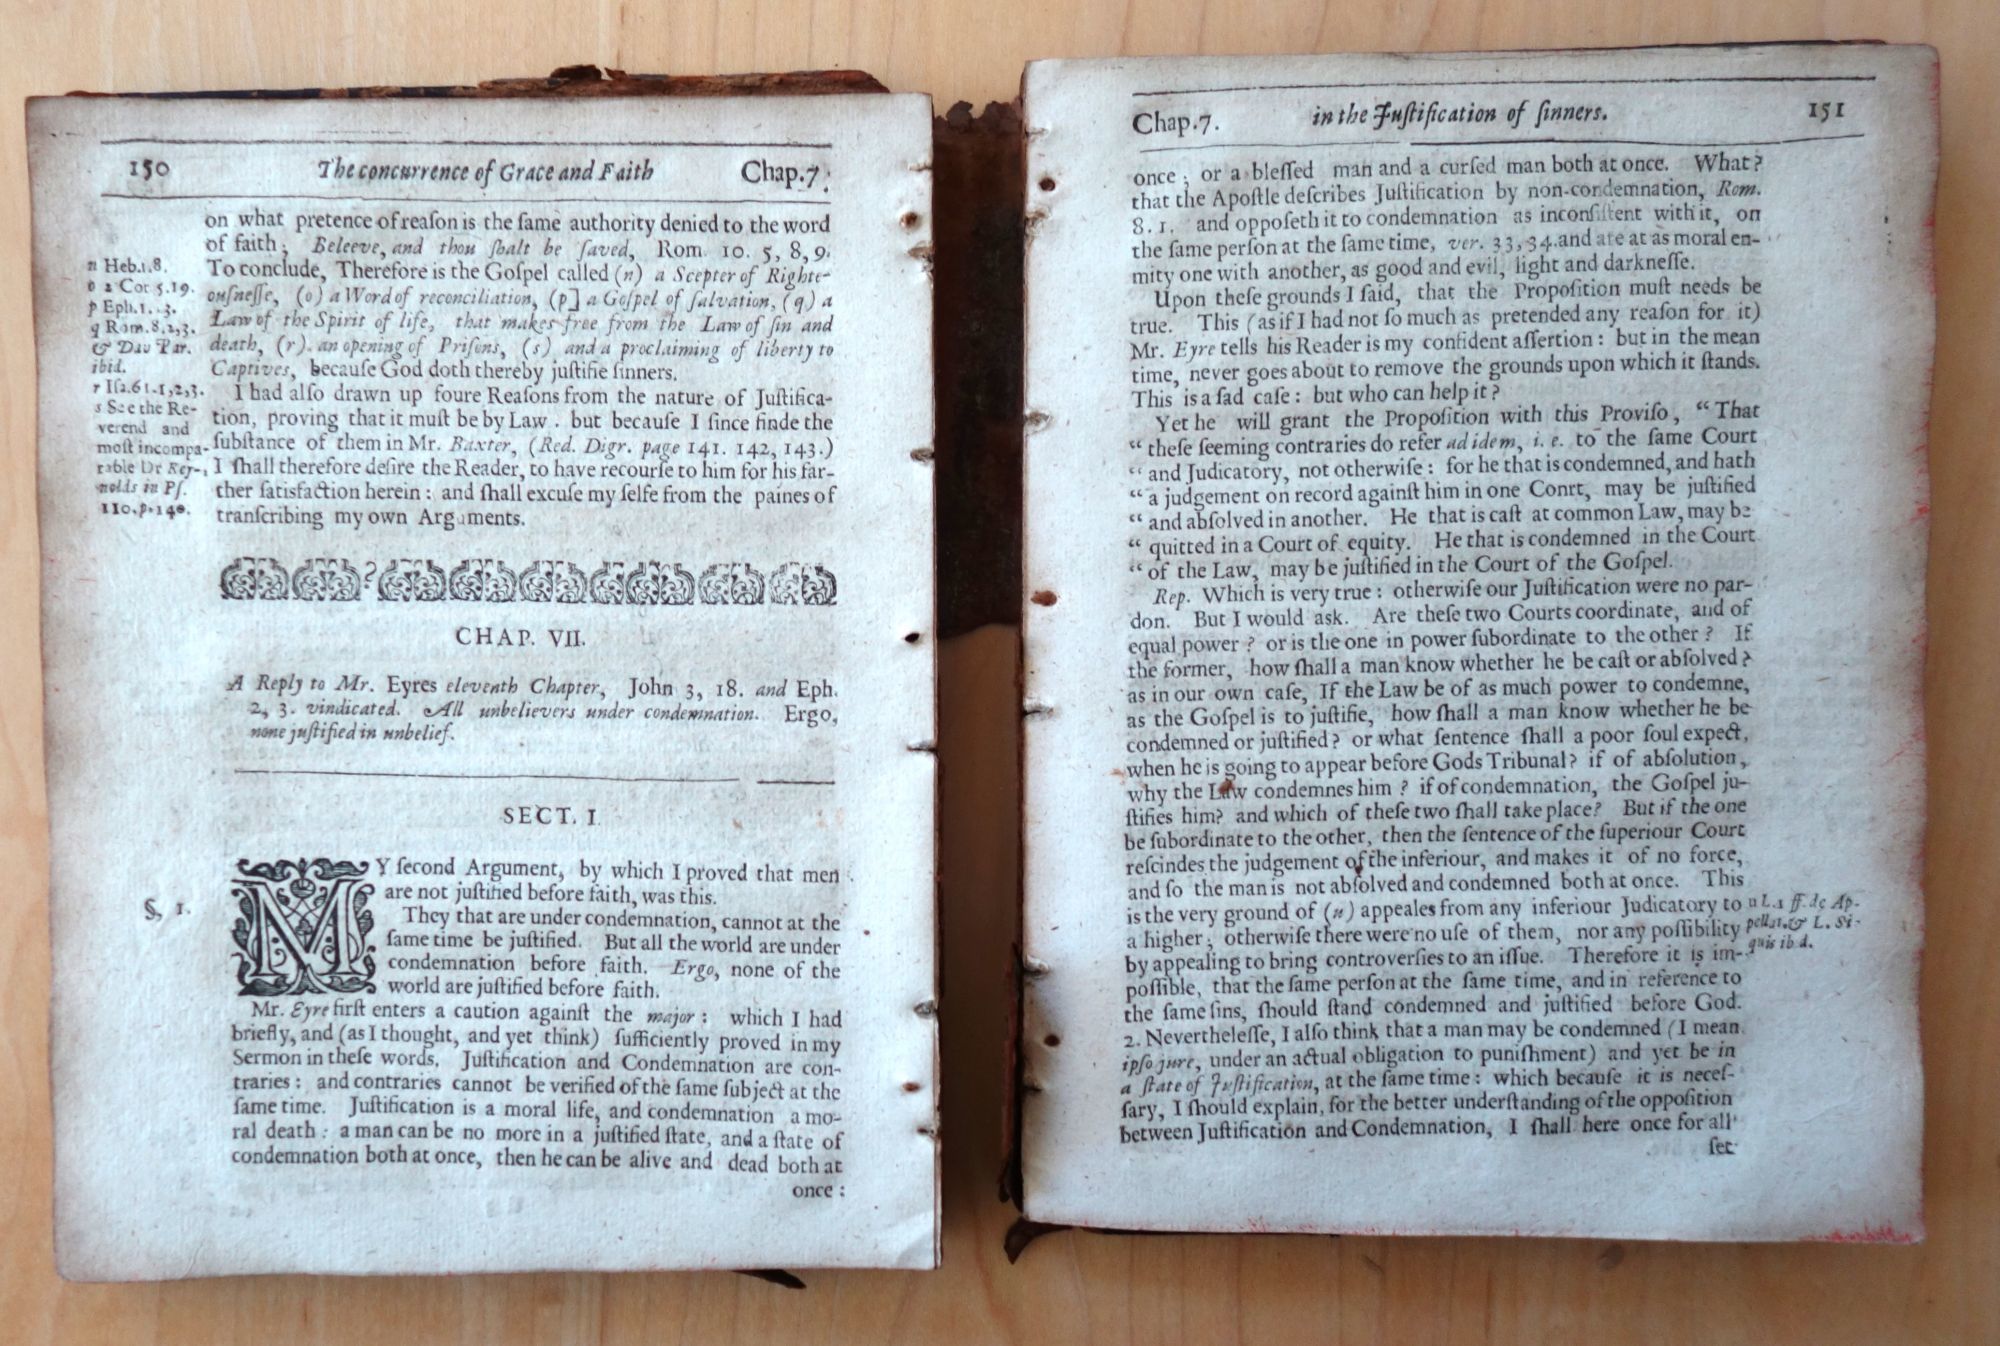 150 The concurrence of Grace and Faith Chap.7.
on what pretence of reaſon is the ſame authority denied to the word
of faith; Beleeve, and thou ſhalt be ſaved, Rom. 10. 5, 8, 9.
To conclude, Therefore is the Goſpel called (n) a Scepter of Righte-
ouſneſſe, (o) a Word of reconciliation, (p] a Goſpel of ſalvation, (q) a
Law of the Spirit of life, that makes free from the Law of ſin and
death, (r) an opening of Priſons, (s) and a proclaiming of liberty to
Captives, becauſe God doth thereby juſtifie ſinners.
I had alſo drawn up foure Reaſons from the nature of Juſtifica-
tion, proving that it muſt be by Law. but becauſe I ſince finde the
ſubſtance of them in Mr. Baxter, (Red. Digr. page 141. 142, 143.)
I ſhall therefore deſire the Reader, to have recourſe to him for his far-
ther ſatisfaction herein: and ſhall excuſe my ſelfe from the paines of
tranſcribing my own Arguments.
n Heb.1.8.
o 2 Cor 5.19.
p Eph.1.13.
q Rom.8.2,3.
& Dav Par.
ibid.
r Iſa.61.1,2,3.
s See the Re-
verend and
moſt incompa-
rable Dr Rey-
nolds in Pſ.
110.p.140.
CHAP. VII.
A Reply to Mr. Eyres eleventh Chapter, John 3, 18. and Eph.
2, 3. vindicated. All unbelievers under condemnation. Ergo,
none juſtified in unbelief.
SECT. I.
§. 1.
MY ſecond Argument, by which I proved that men
are not juſtified before faith, was this.
They that are under condemnation, cannot at the
ſame time be juſtified. But all the world are under
condemnation before faith. Ergo, none of the
world are juſtified before faith.
Mr. Eyre firſt enters a caution againſt the major: which I had
briefly, and (as I thought, and yet think) ſufficiently proved in my
Sermon in theſe words. Juſtification and Condemnation are con-
traries: and contraries cannot be verified of the ſame ſubject at the
ſame time. Juſtification is a moral life, and condemnation a mo-
ral death: a man can be no more in a juſtified ſtate, and a ſtate of
condemnation both at once, then he can be alive and dead both at
once:
Chap.7. in the Juſtification of ſinners. 151
once; or a bleſſed man and a curſed man both at once. What?
that the Apoſtle deſcribes Juſtification by non-condemnation, Rom.
8. 1. and oppoſeth it to condemnation as inconſiſtent with it, on
the ſame perſon at the ſame time, ver. 33, 34. and are at as moral en-
mity one with another, as good and evil, light and darkneſſe.
Upon theſe grounds I ſaid, that the Propoſition muſt needs be
true. This (as if I had not ſo much as pretended any reaſon for it)
Mr. Eyre tells his Reader is my confident aſſertion: but in the mean
time, never goes about to remove the grounds upon which it ſtands.
This is a ſad caſe: but who can help it?
Yet he will grant the Propoſition with this Proviſo, “That
“ theſe ſeeming contraries do refer ad idem, i. e. to the ſame Court
“ and Judicatory, not otherwiſe: for he that is condemned, and hath
“ a judgement on record againſt him in one Conrt, may be juſtified
“ and abſolved in another. He that is caſt at common Law, may be
“ quitted in a Court of equity. He that is condemned in the Court
“ of the Law, may be juſtified in the Court of the Goſpel.
Rep. Which is very true: otherwiſe our Juſtification were no par-
don. But I would ask. Are theſe two Courts coordinate, and of
equal power? or is the one in power ſubordinate to the other? If
the former, how ſhall a man know whether he be caſt or abſolved?
as in our own caſe, If the Law be of as much power to condemne,
as the Goſpel is to juſtifie, how ſhall a man know whether he be
condemned or juſtified? or what ſentence ſhall a poor ſoul expect,
when he is going to appear before Gods Tribunal? if of abſolution,
why the Law condemnes him? if of condemnation, the Goſpel ju-
ſtifies him? and which of theſe two ſhall take place? But if the one
be ſubordinate to the other, then the ſentence of the ſuperiour Court
reſcindes the judgement of the inferiour, and makes it of no force,
and ſo the man is not abſolved and condemned both at once. This
is the very ground of (u) appeales from any inferiour Judicatory to
a higher; otherwiſe there were no uſe of them, nor any poſſibility
by appealing to bring controverſies to an iſſue. Therefore it is im-
poſſible, that the ſame perſon at the ſame time, and in reference to
the ſame ſins, ſhould ſtand condemned and juſtified before God.
2. Nevertheleſſe, I alſo think that a man may be condemned (I mean
ipſo jure, under an actual obligation to puniſhment) and yet be in
a ſtate of Juſtification, at the ſame time: which becauſe it is neceſ-
ſary, I ſhould explain, for the better underſtanding of the oppoſition
between Juſtification and Condemnation, I ſhall here once for all
ſet
u L.1 ff. de Ap-
pellat. & L. Si-
quis ibid.